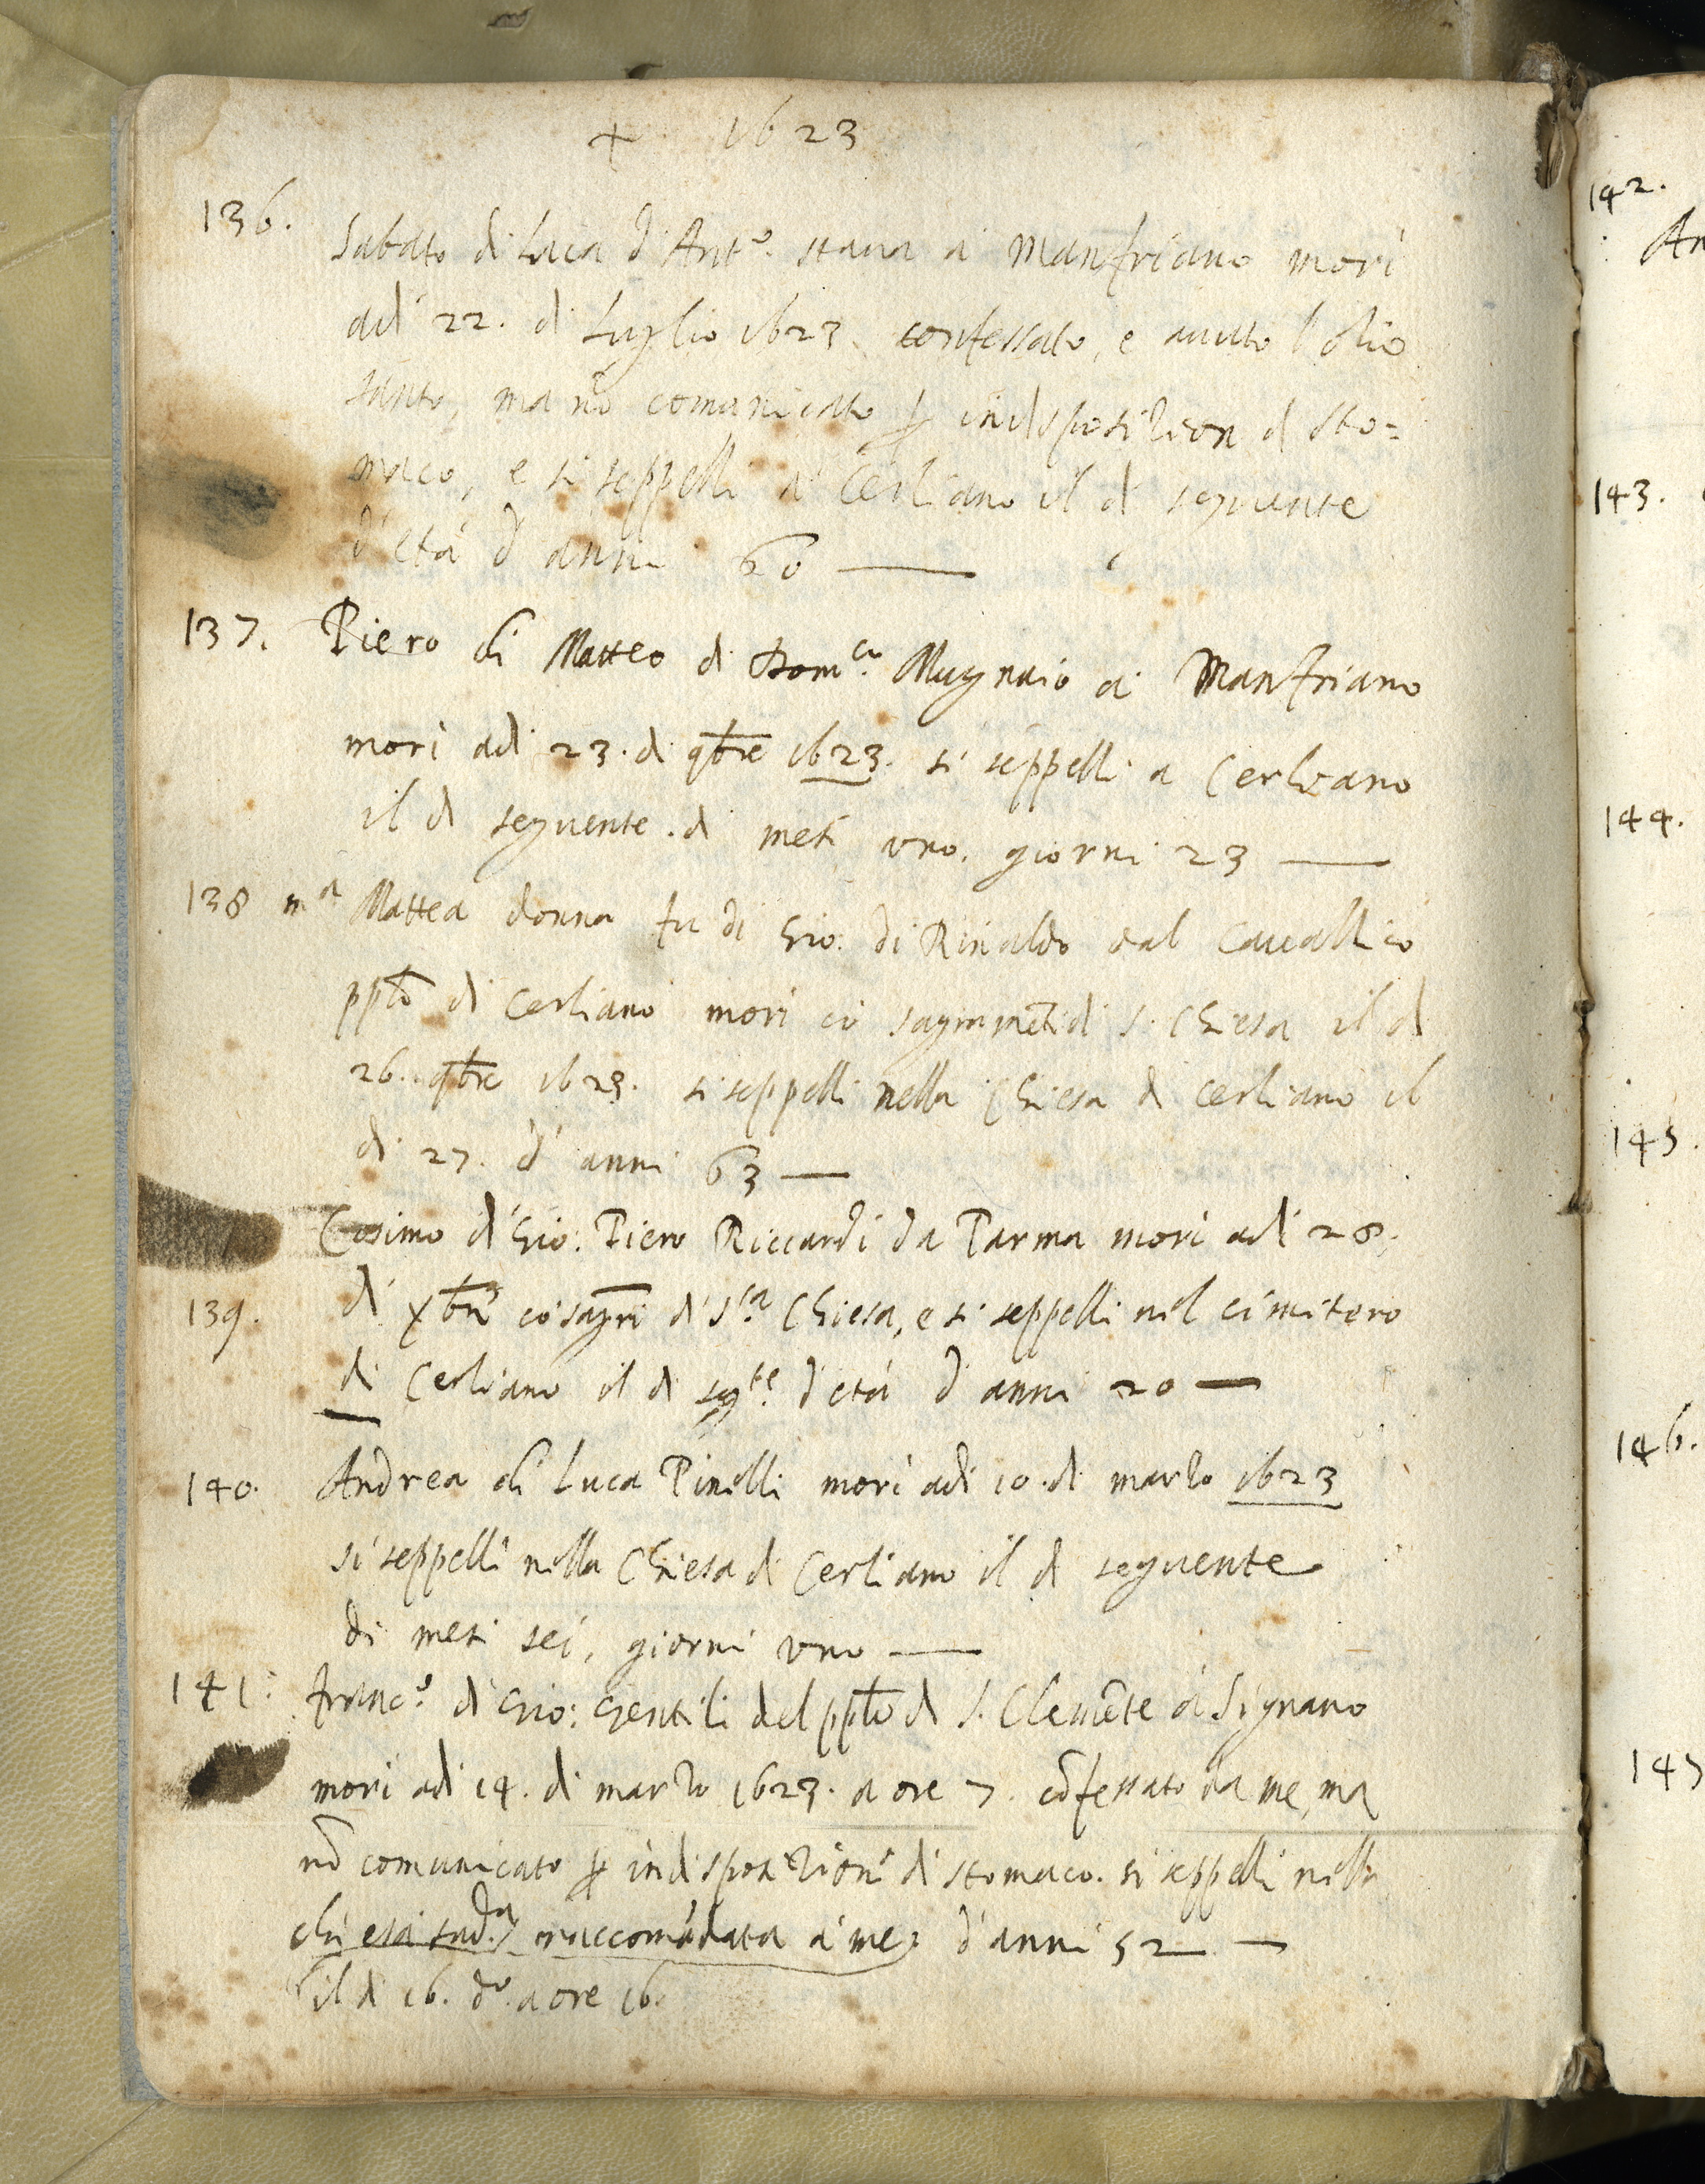 + 1623
136. Sabato di Luca d'Ant.º stava a Manfriano morì
adì 22. di Luglio 1623. confessato, e avuto l'olio
santo, ma nō comunicato ꝑ indisposizion di sto=
maco, e si seppellì a Cerliano il dì seguente
d'età d'anni 60 —
137. Piero di Matteo di Dom.co Mugnaio a Manfriano
morì adì 23. di 9bre 1623. si seppellì a Cerliano
il dì seguente. di mesi uno. giorni 23 —
138 m.a Mattea donna fu di Gio: di Rinaldo dal Cavallico
pplō di Cerliano morì cō sagramēti di S. Chiesa il dì
26. 9bre 1623. si seppellì nella Chiesa di Cerliano il
dì 27. d'anni 63 —
Cosimo di Gio: Piero Riccardi da Parma morì adì 28.
139. di Xbre cō sagri di S.ta Chiesa, e si seppellì nel cimitero
di Cerliano il dì seg.te d'età d'anni 20 —
140. Andrea di Luca Pinelli morì adì 10. di marzo 1623
si seppellì nella Chiesa di Cerliano il dì seguente
di mesi sei, giorni uno —
141: Franc.º di Gio: Gentili del pplō di S. Clemēte a Signano
morì adì 14. di marzo 1623. a ore 7. cōfessato da me, ma
nō comunicato ꝑ indisposizione di stomaco. si seppellì nella
chiesa sud.a raccomādata a me; d'anni 52 —
il dì 16. dº. a ore 16.
142.
An
143.
144.
145.
146.
147